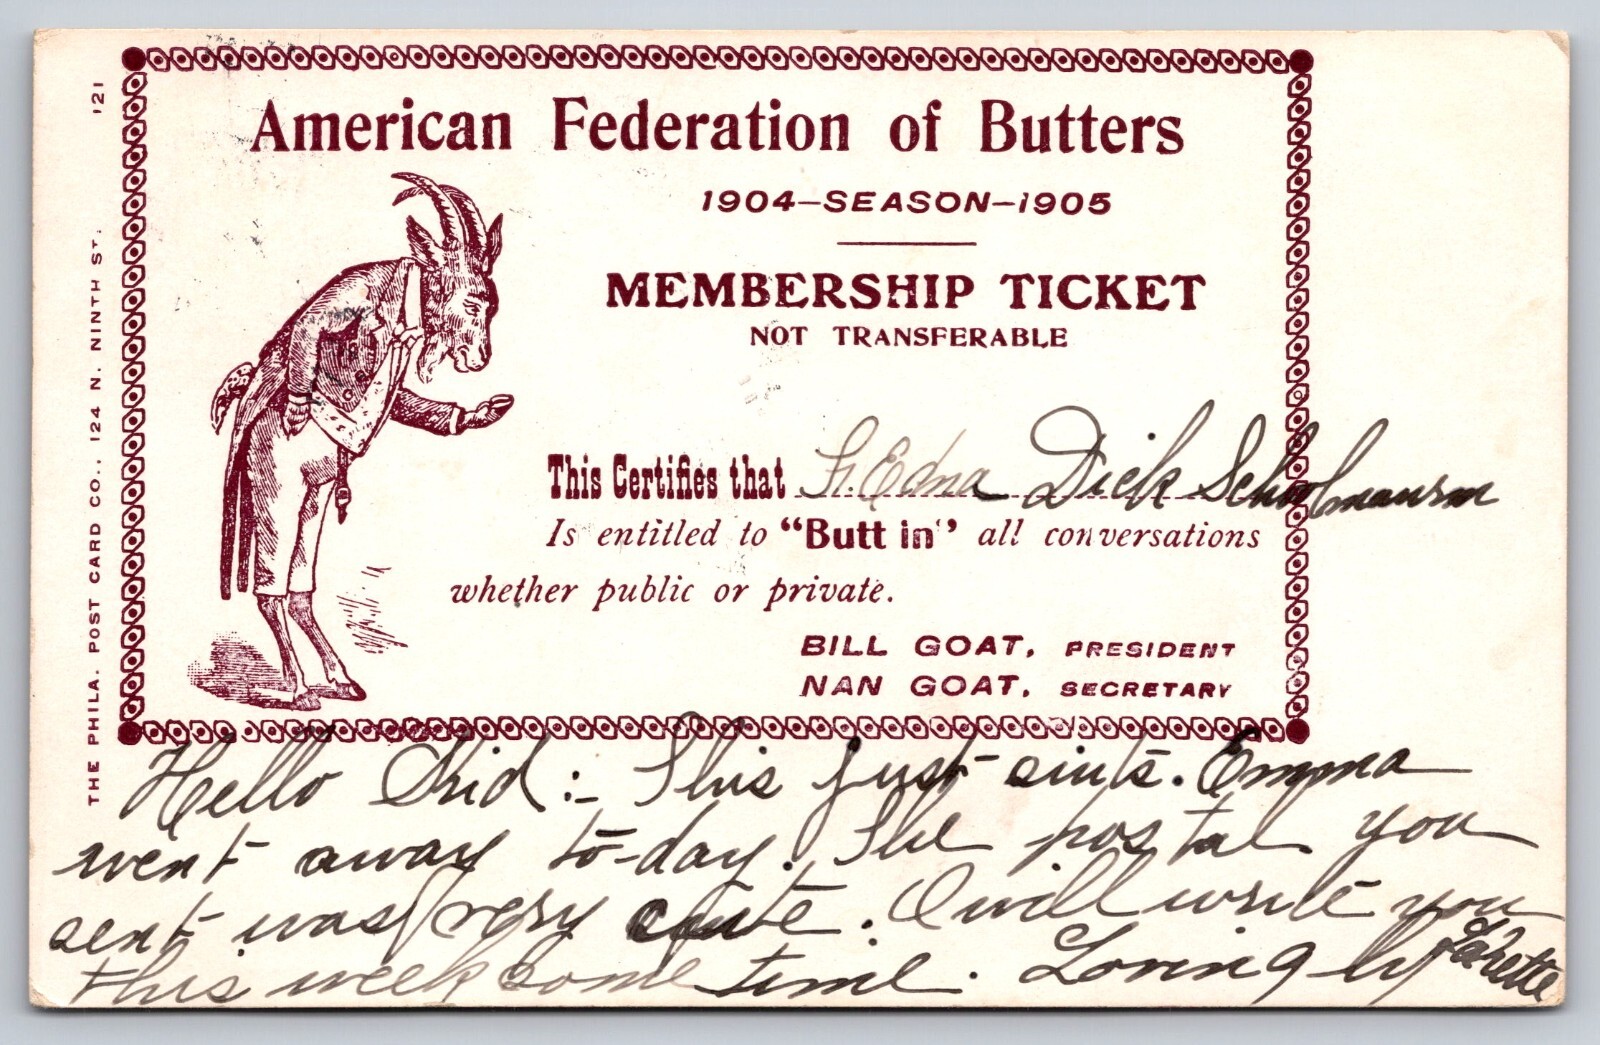 American Federation of Butters
1904—SEASON—1905
MEMBERSHIP TICKET
NOT TRANSFERABLE
This Certifies that Edna Dick
Is entitled to "Butt in" all conversations
whether public or private.
BILL GOAT, PRESIDENT
NAN GOAT, SECRETARY
THE PHILA. POST CARD CO., 124 N. NINTH ST. 121
Hello Kid:- This just suits. Emma
went away to-day. The postal you
sent was very cute. I will write you
this week some time. Lovingly